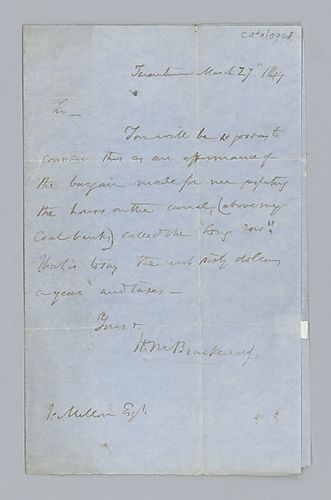 catalogued
Tarentum March 27" 1849
Sir —
You will be so good as to
consider this as an affirmance of
the bargain made for me respecting
the houses on the canal, (above my
Coal bank) called the "long row"
that is to say the rent sixty dollars
a year and taxes —
Yours &
H. M. Brackenridge
Mellon Esqr.